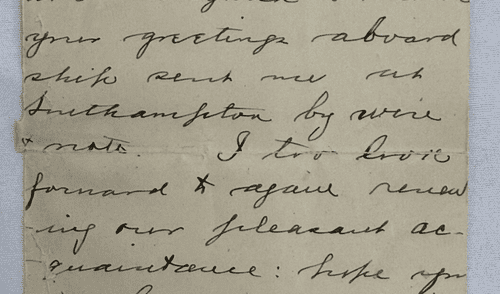 your greetings aboard
ship sent me at
Southampton by wire
& note. I too look
forward to again renew
-ing our pleasant ac-
quaintance: hope you